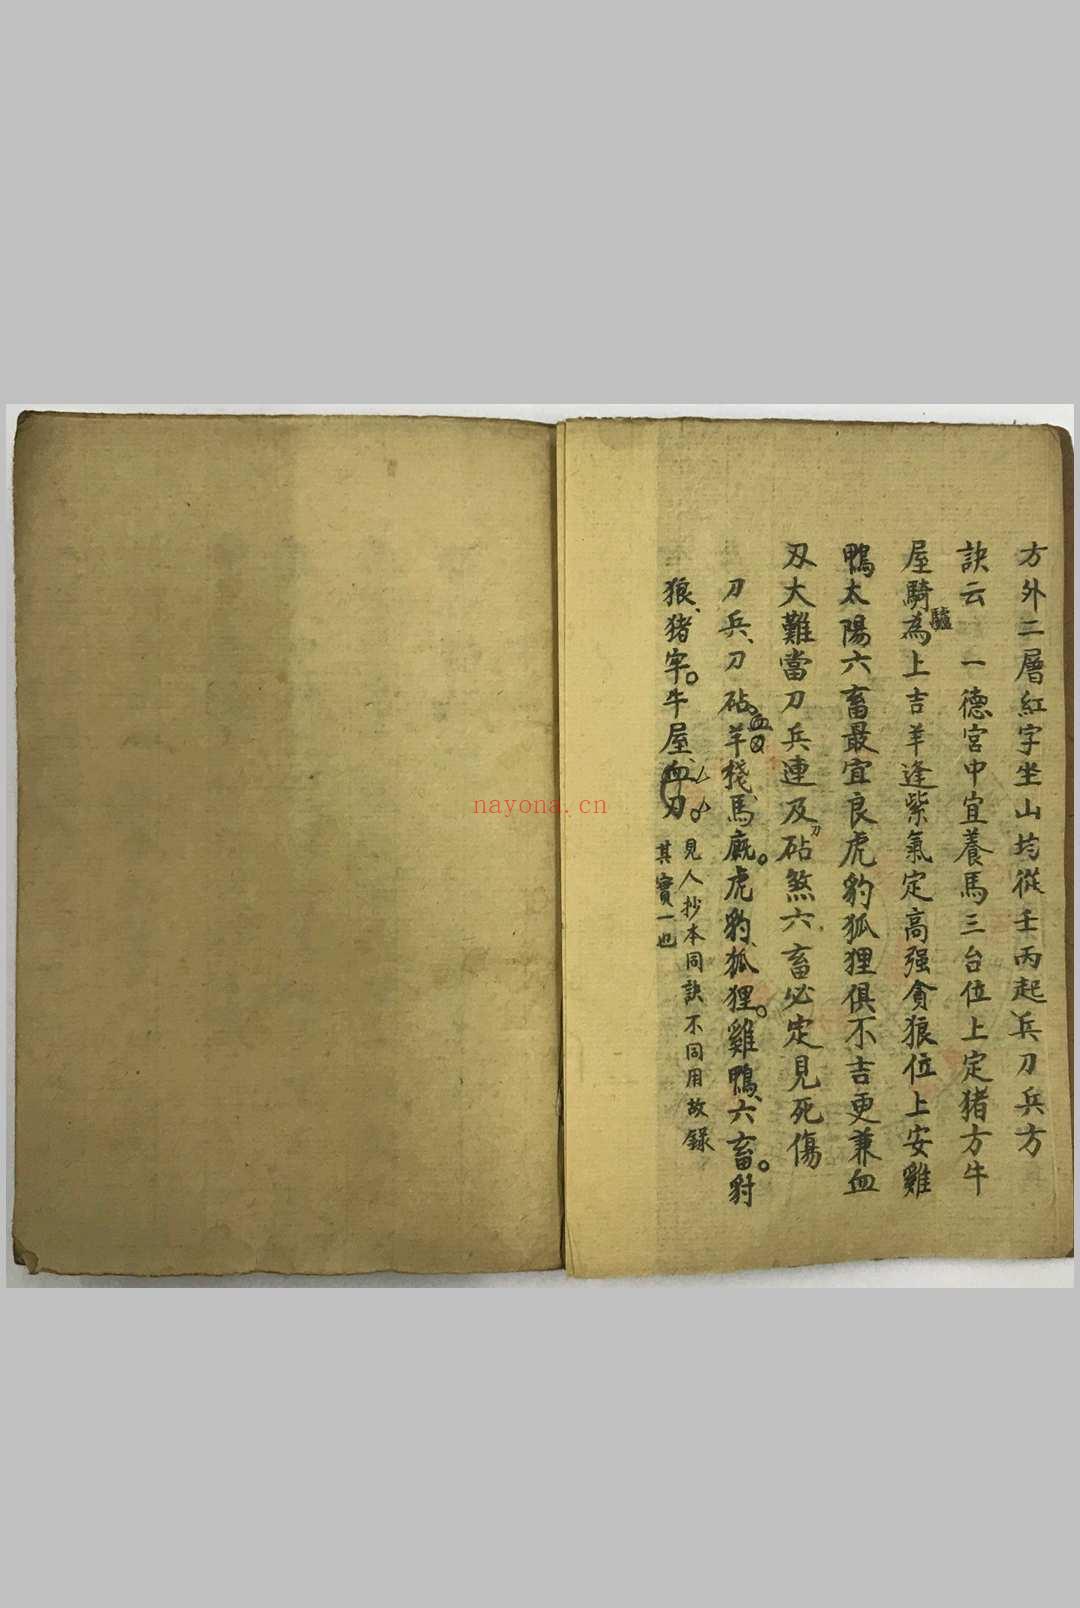 方外二層紅字坐山均從壬丙起兵刀兵方
訣云 一德宮中宜養馬三台位上定猪方牛
屋騎為上吉羊逢紫氣定高强貪狼位上安雞
驢
鴨太陽六畜最宜良虎豹狐狸俱不吉更兼血
刄大難當刀兵連及砧煞六畜必定見死傷
刀
刀兵、刀砧羊棧、馬廐。虎豹、狐狸。雞鴨、六畜。豺
血刄
狼、猪牢。牛屋、血刀。
見人抄本同訣不同用故錄
其實一也
nayona.cn